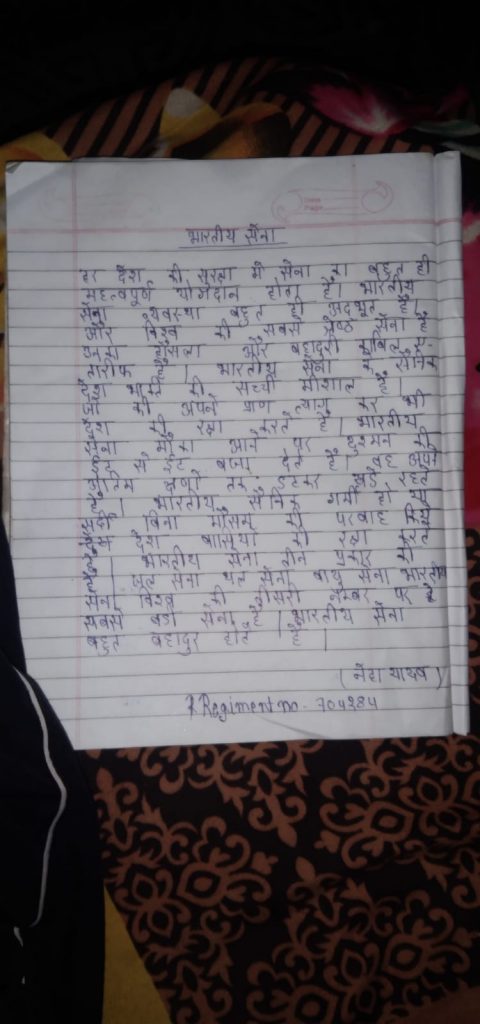 भारतीय सेना
हर देश की सुरक्षा में सेना का बहुत ही
महत्वपूर्ण योगदान होता है। भारतीय
सेना व्यवस्था बहुत ही अदभुत है।
और विश्व की सबसे श्रेष्ठ सेना है
और बहादुरी काबिले-ए-
तारीफ है। भारतीय सेना के सैनिक
देश की सच्ची मीशाल है।
जो की अपने प्राण त्याग कर भी
देश की रक्षा करते है। भारतीय
सेना मौका आने पर दुश्मन की
ईंट से ईंट बजा देते है। वह अपने
अंतिम क्षणों तक डटकर खड़े रहते
है। भारतीय सैनिक गर्मी हो या
सर्दी बिना मौसम की परवाह किये
देश वासियों की रक्षा करते
है। भारतीय सेना तीन प्रकार की
जल सेना थल सेना वायु सेना भारतीय
सेना विश्व की तीसरी नम्बर पर
सबसे बड़ी सेना है। भारतीय सेना
बहुत बहादुर होते है।
(नेहा यादव)
Regiment no - 704284